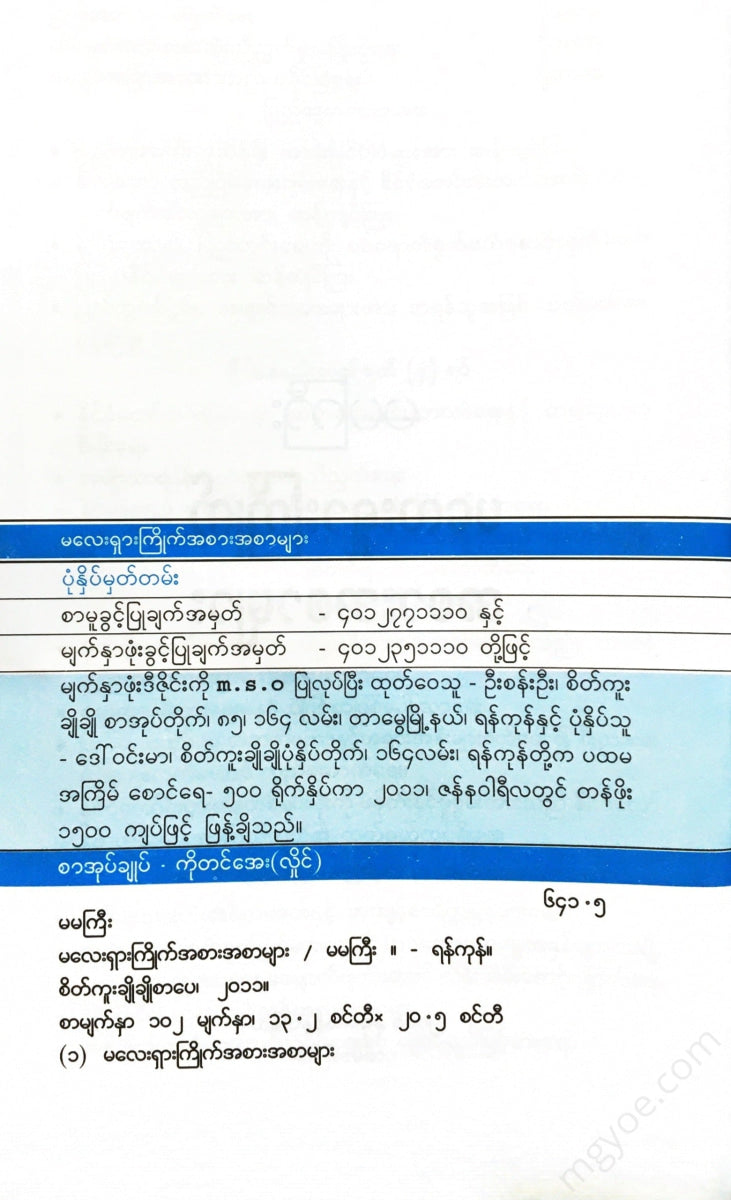 မလေးရှားကြိုက်အစားအစာများ
ပုံနှိပ်မှတ်တမ်း
စာမူခွင့်ပြုချက်အမှတ် - ၄၀၁၂၇၇၁၁၁၀ နှင့်
မျက်နှာဖုံးခွင့်ပြုချက်အမှတ် - ၄၀၁၂၃၅၁၁၁၀ တို့ဖြင့်
မျက်နှာဖုံးဒီဇိုင်းကို m.s.o ပြုလုပ်ပြီး ထုတ်ဝေသူ - ဦးစန်းဦး၊ စိတ်ကူး
ချိုချို စာအုပ်တိုက်၊ ၈၅၊ ၁၆၄ လမ်း၊ တာမွေမြို့နယ်၊ ရန်ကုန်နှင့် ပုံနှိပ်သူ
- ဒေါ်ဝင်းမာ၊ စိတ်ကူးချိုချိုပုံနှိပ်တိုက်၊ ၁၆၄လမ်း၊ ရန်ကုန်တို့က ပထမ
အကြိမ် စောင်ရေ- ၅၀၀ ရိုက်နှိပ်ကာ ၂၀၁၁၊ ဇန်နဝါရီလတွင် တန်ဖိုး
၁၅၀၀ ကျပ်ဖြင့် ဖြန့်ချိသည်။
စာအုပ်ချုပ် - ကိုတင်အေး(လှိုင်)
၆၄၁.၅
မမကြီး
မလေးရှားကြိုက်အစားအစာများ / မမကြီး ။ - ရန်ကုန်။
စိတ်ကူးချိုချိုစာပေ၊ ၂၀၁၁။
စာမျက်နှာ ၁၀၂ မျက်နှာ၊ ၁၃.၂ စင်တီ× ၂၀.၅ စင်တီ
(၁) မလေးရှားကြိုက်အစားအစာများ
mgyoe.com